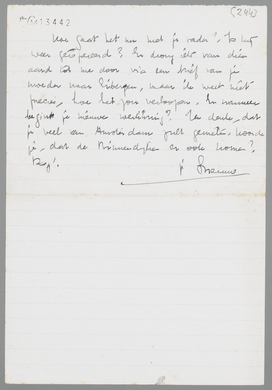 (244)
Hoe gaat het nu met je vader? Is hij
weer geopereerd? Er drong iets van dien
aard tot me door via een brief van je
moeder naar Eibergen, maar ik weet niet
precies, hoe het is verloopen. En wanneer
begint je nieuwe werkkring? Ik denk, dat
je veel van Amsterdam zult genieten. Hoorde
je, dat de Nijmeegsche er ook komen?
Dag!
je